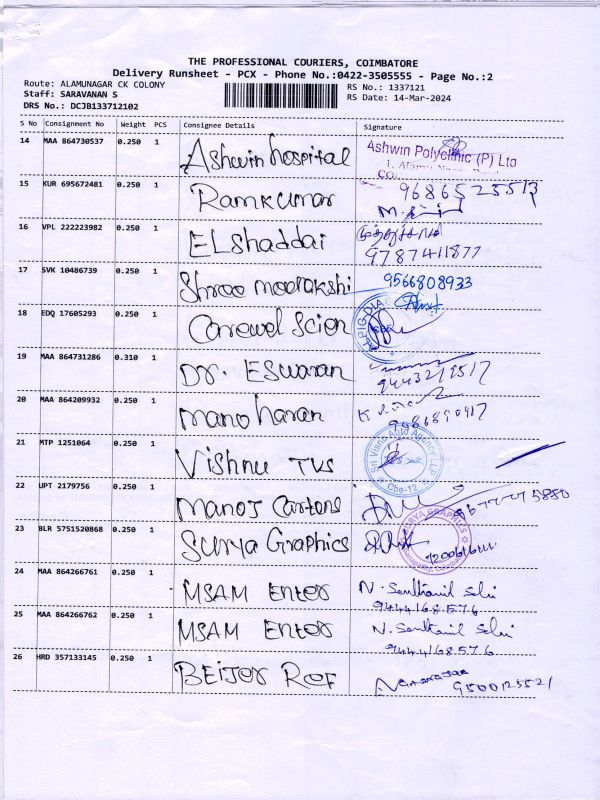 THE PROFESSIONAL COURIERS, COIMBATORE
Delivery Runsheet - PCX - Phone No.:0422-3505555 - Page No.:2
Route: ALAMUNAGAR CK COLONY
Staff: SARAVANAN S
DRS No.: DCJB133712102
RS No.: 1337121
RS Date: 14-Mar-2024
S No Consignment No Weight PCS Consignee Details Signature
14 MAA 864730537 0.250 1 Ashwin hospital Ashwin Polyclinic (P) Ltd
15 KUR 695672481 0.250 1 Ramkumar
16 VPL 222223982 0.250 1 ELshaddai 9787411877
17 SVK 10486739 0.250 1 Shree meenakshi 9566808933
18 EDQ 17605293 0.250 1 Carewel Scien
19 MAA 864731286 0.310 1 Dr. Eswaran
20 MAA 864209932 0.250 1 Mano haran
21 MTP 1251064 0.250 1 Vishnu TVS
22 UPT 2179756 0.250 1 Manoj Cartens
23 BLR 5751520868 0.250 1 Surya Graphics
24 MAA 864266761 0.250 1 MSAM Enter N. Senthamil Selvi
9444168576
25 MAA 864266762 0.250 1 MSAM Enter N. Senthamil Selvi
9444168576
26 HRD 357133145 0.250 1 BEIJER REF 9500125521